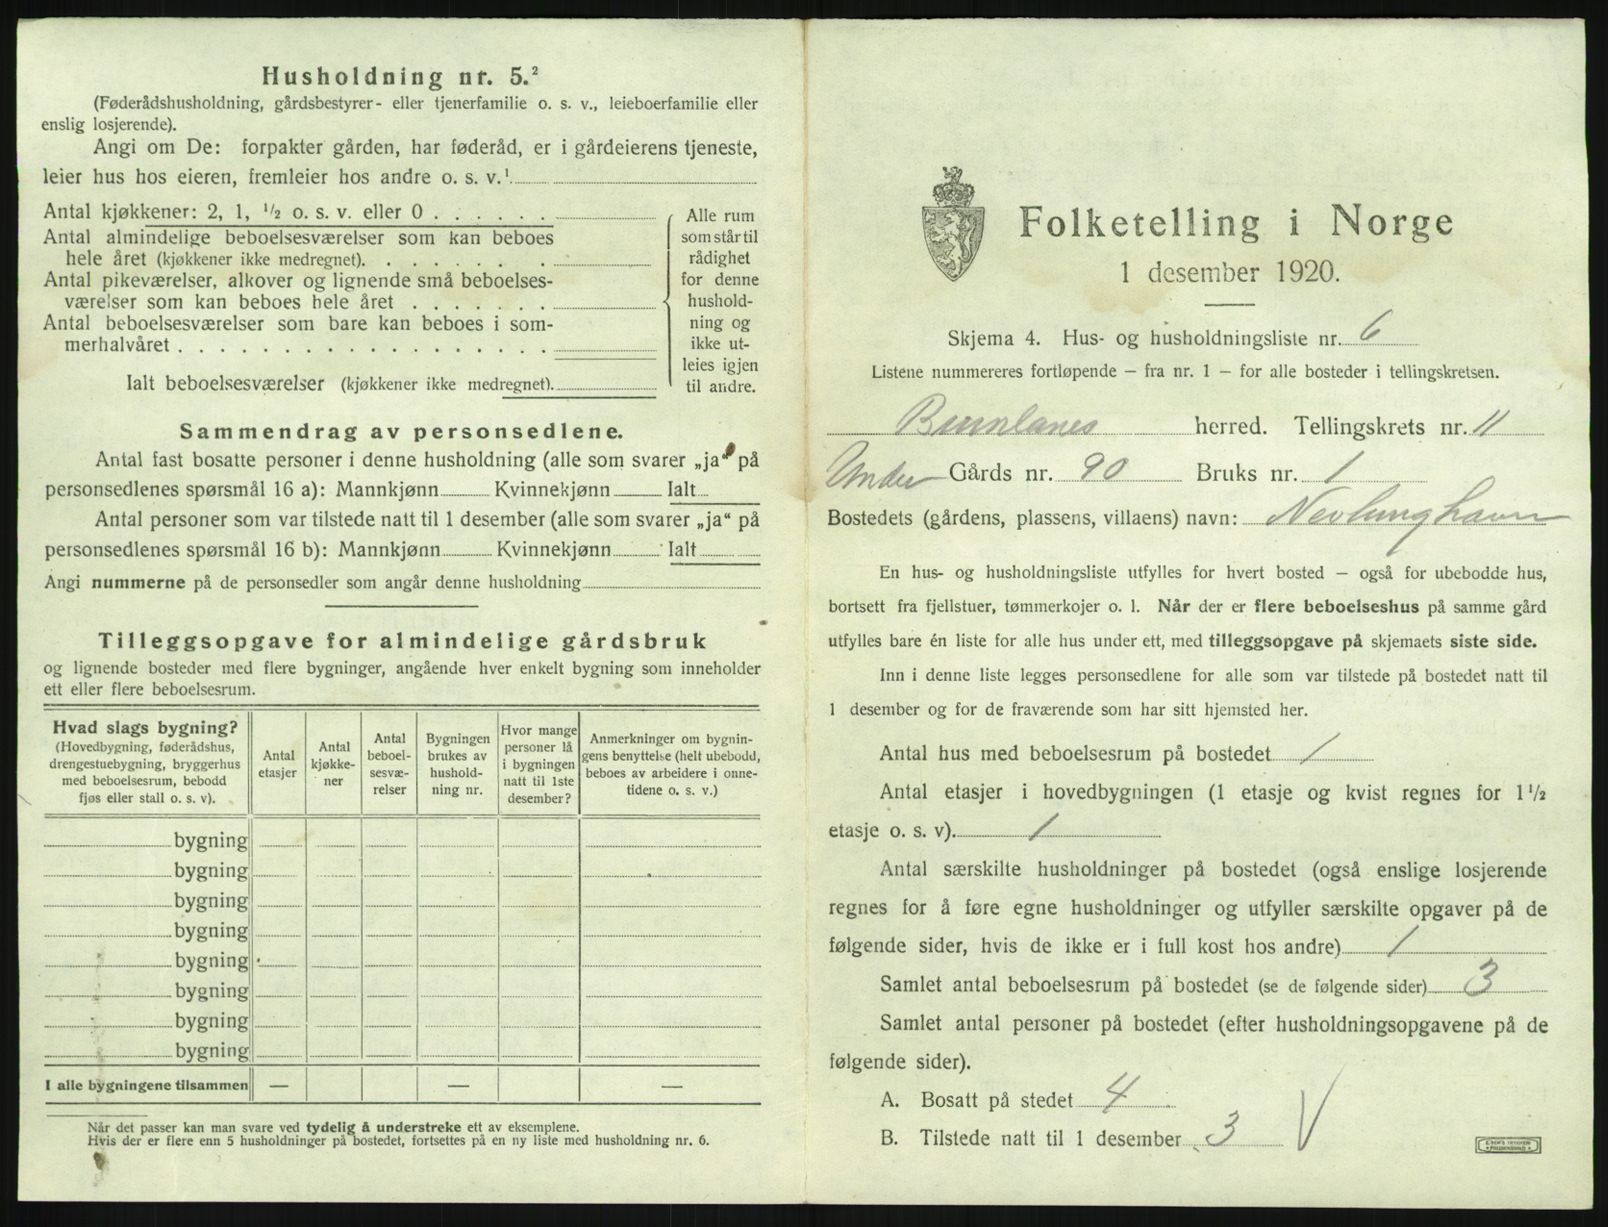 Husholdning nr. 5.²
(Føderådshusholdning, gårdsbestyrer- eller tjenerfamilie o. s. v., leieboerfamilie eller
enslig losjerende).
Angi om De: forpakter gården, har føderåd, er i gårdeierens tjeneste,
leier hus hos eieren, fremleier hos andre o. s. v.¹
Antal kjøkkener: 2, 1, ½ o. s. v. eller 0
Antal almindelige beboelsesværelser som kan beboes
hele året (kjøkkener ikke medregnet).
Antal pikeværelser, alkover og lignende små beboelses-
værelser som kan beboes hele året
Antal beboelsesværelser som bare kan beboes i som-
merhalvåret
Ialt beboelsesværelser (kjøkkener ikke medregnet).
Alle rum
som står til
rådighet
for denne
hushold-
ning og
ikke ut-
leies igjen
til andre.
Sammendrag av personsedlene.
Antal fast bosatte personer i denne husholdning (alle som svarer „ja“ på
personsedlenes spørsmål 16 a): Mannkjønn Kvinnekjønn Ialt
Antal personer som var tilstede natt til 1 desember (alle som svarer „ja“ på
personsedlenes spørsmål 16 b): Mannkjønn Kvinnekjønn Ialt
Angi nummerne på de personsedler som angår denne husholdning
Tilleggsopgave for almindelige gårdsbruk
og lignende bosteder med flere bygninger, angående hver enkelt bygning som inneholder
ett eller flere beboelsesrum.
Hvad slags bygning?
(Hovedbygning, føderådshus,
drengestuebygning, bryggerhus
med beboelsesrum, bebodd
fjøs eller stall o. s. v).
Antal
etasjer
Antal
kjøkke-
ner
Antal
beboel-
sesvæ-
relser
Bygningen
brukes av
hushold-
ning nr.
Hvor mange
personer lå
i bygningen
natt til 1ste
desember?
Anmerkninger om bygnin-
gens benyttelse (helt ubebodd,
beboes av arbeidere i onne-
tidene o. s. v.)
bygning
bygning
bygning
bygning
bygning
bygning
bygning
bygning
I alle bygningene tilsammen — — —
Når det passer kan man svare ved tydelig å understreke ett av eksemplene.
Hvis der er flere enn 5 husholdninger på bostedet, fortsettes på en ny liste med husholdning nr. 6.
Folketelling i Norge
1 desember 1920.
Skjema 4. Hus- og husholdningsliste nr. 6
Listene nummereres fortløpende — fra nr. 1 — for alle bosteder i tellingskretsen.
Brunlanes herred. Tellingskrets nr. 11
Under Gårds nr. 90 Bruks nr. 1
Bostedets (gårdens, plassens, villaens) navn: Nevlunghavn
En hus- og husholdningsliste utfylles for hvert bosted — også for ubebodde hus,
bortsett fra fjellstuer, tømmerkojer o. l. Når der er flere beboelseshus på samme gård
utfylles bare én liste for alle hus under ett, med tilleggsopgave på skjemaets siste side.
Inn i denne liste legges personsedlene for alle som var tilstede på bostedet natt til
1 desember og for de fraværende som har sitt hjemsted her.
Antal hus med beboelsesrum på bostedet 1
Antal etasjer i hovedbygningen (1 etasje og kvist regnes for 1½
etasje o. s. v). 1
Antal særskilte husholdninger på bostedet (også enslige losjerende
regnes for å føre egne husholdninger og utfyller særskilte opgaver på de
følgende sider, hvis de ikke er i full kost hos andre) 1
Samlet antal beboelsesrum på bostedet (se de følgende sider) 3
Samlet antal personer på bostedet (efter husholdningsopgavene på de
følgende sider).
A. Bosatt på stedet 4
B. Tilstede natt til 1 desember 3 V